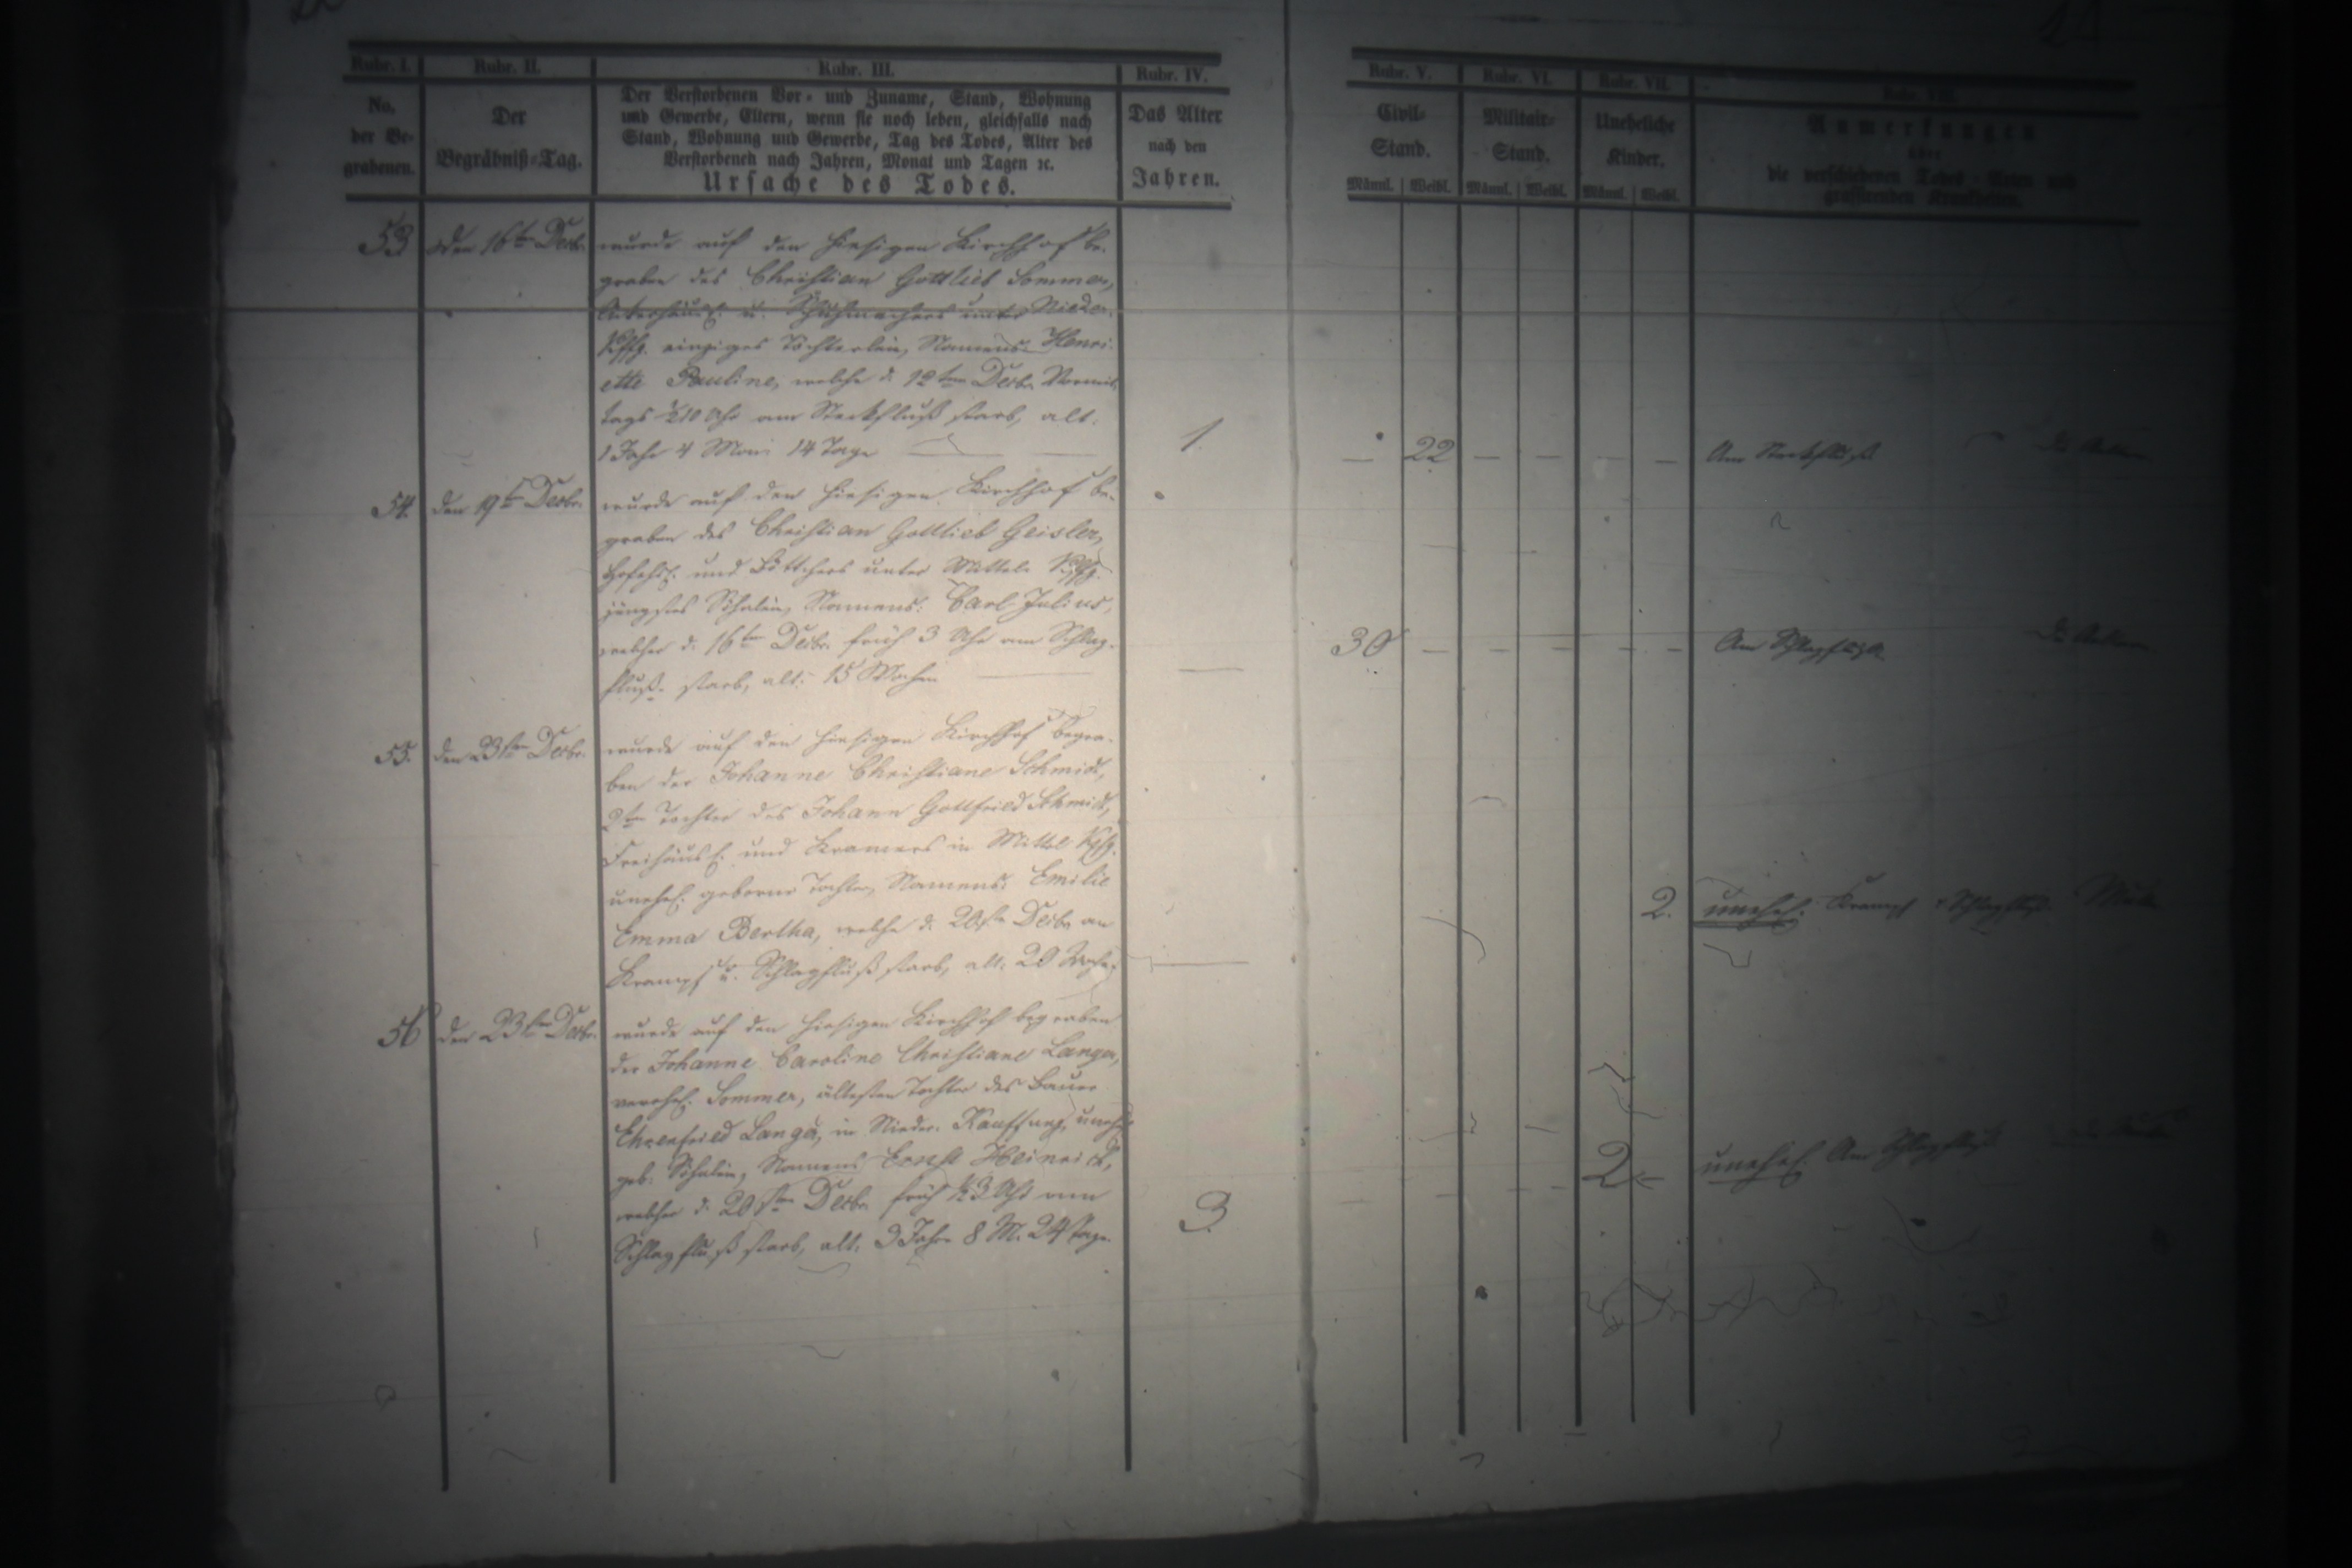 Rubr. I. Rubr. II. Rubr. III. Rubr. IV. Rubr. V. Rubr. VI. Rubr. VII. Rubr. VIII.
No. der Be-grabenen.
Der Begräbniß-Tag.
Der Verstorbenen Vor- und Zuname, Stand, Wohnung
und Gewerbe, Eltern, wenn sie noch leben, gleichfalls nach
Stand, Wohnung und Gewerbe, Tag des Todes, Alter des
Verstorbenen nach Jahren, Monat und Tagen ꝛc.
Ursache des Todes.
Das Alter nach den Jahren.
Civil-Stand.
Militair-Stand.
Uneheliche Kinder.
Anmerkungen
über
die verschiedenen Todes-Arten und
grassirenden Krankheiten.
Männl. Weibl. Männl. Weibl. Männl. Weibl.
53 den 16ten Decbr. wurde auf den hiesigen Kirchhof be-
graben des Christian Gottlieb Sommer,
u. Schuhmachers unter Nieder-
Kffg. einziges Töchterlein, Namens: Henri-
ette Pauline, welche d. 12ten Decbr. Vormit-
tags ½10 Uhr am Steckfluß starb, alt:
1 Jahr 4 Mon: 14 Tage — 1. — 22 — — — — Am Steckfluß
54. den 19t Decbr. wurde auf den hiesigen Kirchhof be-
graben des Christian Gottlieb Geisler,
und Böttchers unter Mittel- Kffg.
jüngstes Söhnlein, Namens: Carl Julius,
welcher d. 16ten Decbr. früh 3 Uhr am Schlag-
fluß starb, alt: 15 Wochen — — 30 — — — — — Am Schlagfluß
55. den 23sten Decbr. wurde auf den hiesigen Kirchhof begra-
ben der Johanne Christiane Schmidt,
2ten Tochter des Johann Gottfried Schmidt,
Freihäusl. und Kramers in Mittel Kffg.
unehel. geborne Tochter, Namens: Emilie
Emma Bertha, welche d. 20sten Decbr. an
Krampf u. Schlagfluß starb, alt: 20 Wochen — 2. unehel. Krampf u. Schlagfluß
56 den 23sten Decbr. wurde auf den hiesigen Kirchhof begraben
der Johanne Caroline Christiane Langer,
verehel. Sommer, ältesten Tochter des Bauer
Ehrenfried Langer, in Nieder- Kauffung, unehel.
geb. Söhnlein, Namens Ernst Heinrich,
welcher d. 20sten Decbr. früh ½3 Uhr am
Schlagfluß starb, alt: 3 Jahr 8 M. 24 Tage. 3. 2 — unehel. Am Schlagfluß